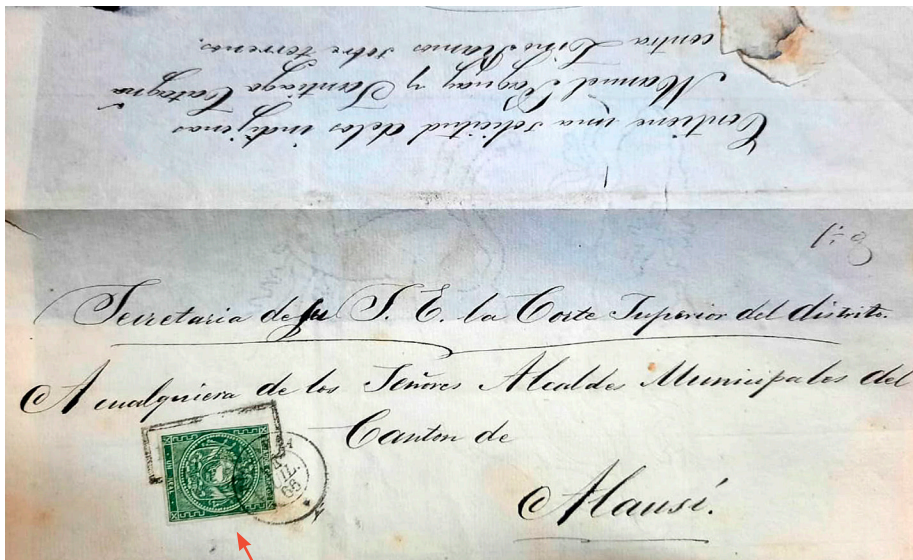 Contiene una solicitud de los indigenas
Manuel y Santiago
contra Lino Ramos sobre terrenos.
Secretaria de su S. E. la Corte Superior del distrito.
A cualquiera de los Señores Alcaldes Municipales del
Canton de
Alausí.
UN